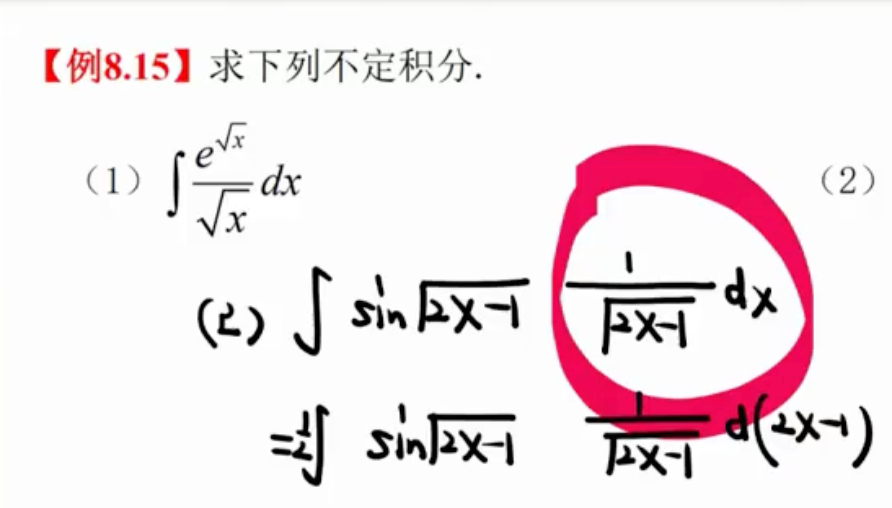 【例8.15】求下列不定积分.
(1) ∫ e^√x / √x dx (2)
(2) ∫ sin√(2x-1) 1/√(2x-1) dx
= 1/2 ∫ sin√(2x-1) 1/√(2x-1) d(2x-1)